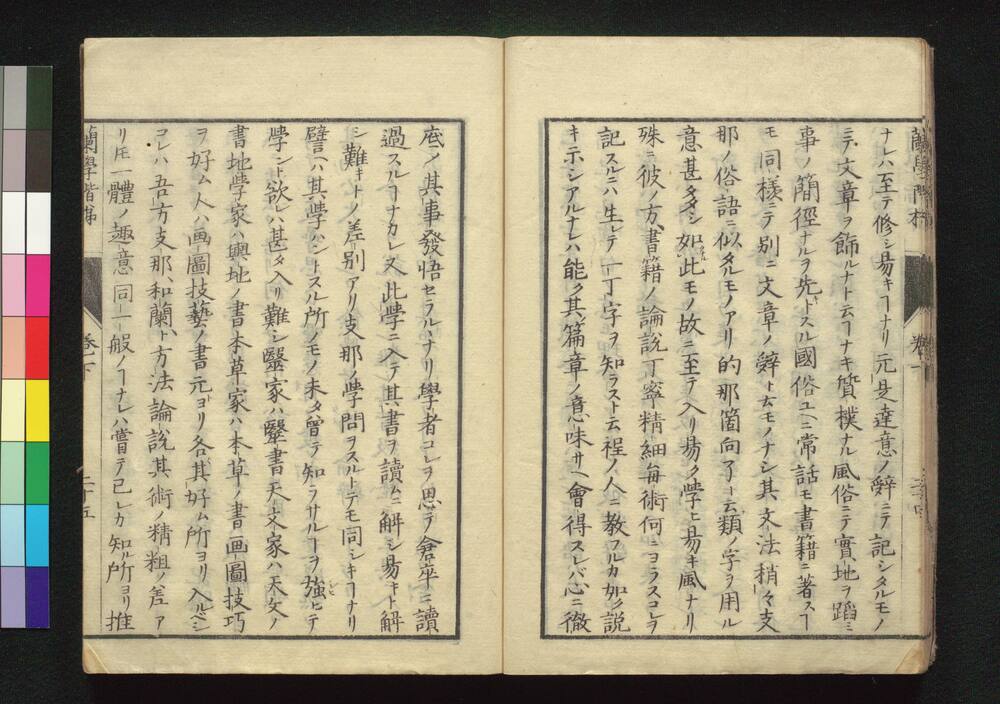 ナレハ至テ修シ易キヿナリ元是達意ノ辭ニテ記シタルモノ
ニテ文章ヲ飾ルナト云ヿナキ質樸ナル風俗ニテ實地ヲ蹈ミ
事ノ簡徑ナルヲ先トスル國俗ユヘニ常話モ書籍ニ著スヿ
モ同様ニテ別ニ文章ノ辭ト云モノナシ其文法稍々支
那ノ俗語ニ似タルモノアリ的那箇向了ト云類ノ字ヲ用ル
意甚タ多シ如此モノ故ニ至テ入リ易ク學ヒ易キ風ナリ
殊ニ彼ノ方書籍ノ論説丁寧精細毎術何ニヨラスコレヲ
記スルニハ生レテ一丁字ヲ知ラスト云程ノ人ニ教フルカ如ク説
キ示シアルナレハ能ク其篇章ノ意味サヘ會得スレバ心ニ徹
底ノ其事發悟セラルヽナリ學者コレヲ思テ倉卒ニ讀
過スルヿナカレ又此學ニ入テ其書ヲ讀ムニ解シ易キト解
シ難キトノ差別アリ支那ノ學問ヲスルトテモ同シキヿナリ
譬ヘハ其學ハントスル所ノモノ未タ曾テ知ラサルヿヲ強ヒテ
學ント欲レハ甚タ入リ難シ醫家ハ醫書天文家ハ天文ノ
書地學家ハ輿地ノ書本草家ハ本草ノ書画圖技巧
ヲ好ム人ハ画圖技藝ノ書元ヨリ各其好ム所ヨリ入ルベシ
コレハ吾方支那、和蘭、ト方法論説其術ノ精粗ノ差ア
リ𪜈一體ノ趣意同一般ノヿナレハ嘗テ已レカ知ル所ヨリ推
蘭學階梯
卷下
二十五